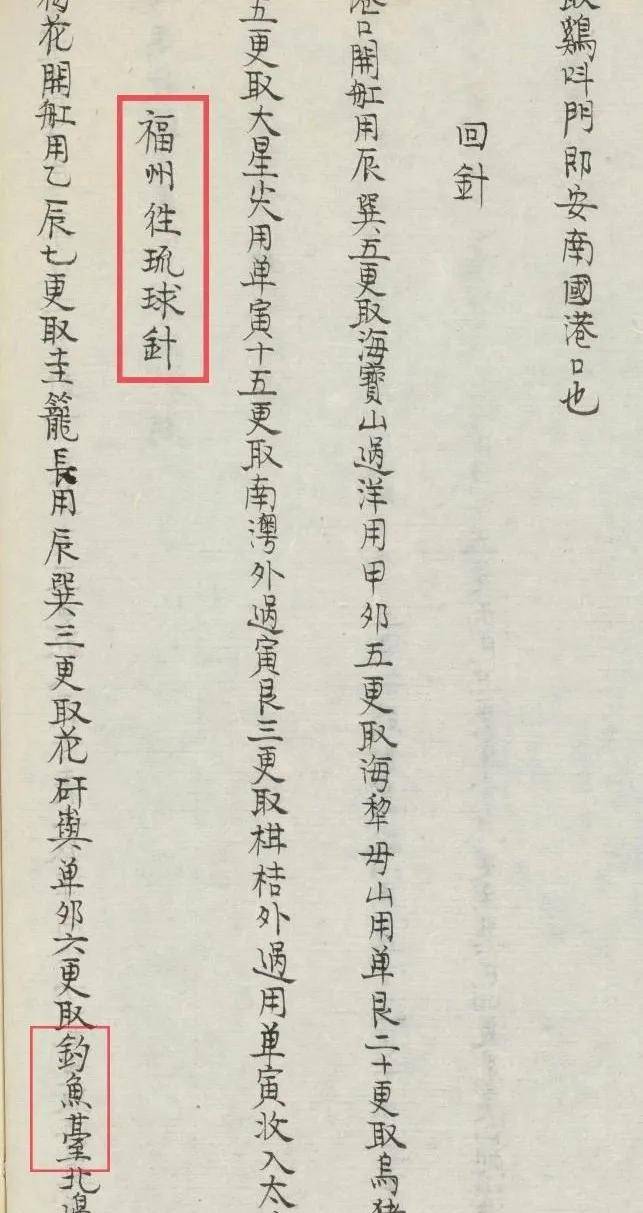 鷄呌門即安南國港口也
回針
港口開舡用辰巽五更取海寶山過洋用甲卯五更取海犂毋山用单艮二十更取烏猪
五更取大星尖用单寅十五更取南澚外過寅艮三更取椇桔外過用单寅收入太
福州徃琉球針
梅花開舡用乙辰七更取圭籠長用辰巽三更取花矸嶼单卯六更取釣魚臺北邊